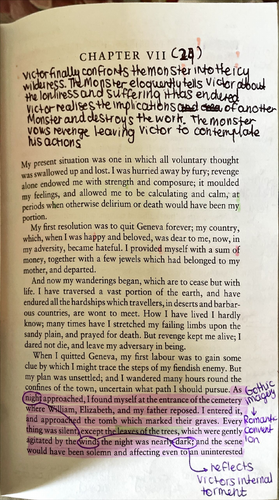 CHAPTER VII (24)
Victor finally confronts the monster into the icy
wilderness. The Monster eloquently tells Victor about
the lonliness and suffering it has endured
Victor realises the implications of another
Monster and destroy's the work. The monster
vows revenge leaving Victor to contemplate
his actions
My present situation was one in which all voluntary thought
was swallowed up and lost. I was hurried away by fury; revenge
alone endowed me with strength and composure; it moulded
my feelings, and allowed me to be calculating and calm, at
periods when otherwise delirium or death would have been my
portion.
My first resolution was to quit Geneva forever; my country,
which, when I was happy and beloved, was dear to me, now, in
my adversity, became hateful. I provided myself with a sum of
money, together with a few jewels which had belonged to my
mother, and departed.
And now my wanderings began, which are to cease but with
life. I have traversed a vast portion of the earth, and have
endured all the hardships which travellers, in deserts and barbar-
ous countries, are wont to meet. How I have lived I hardly
know; many times have I stretched my failing limbs upon the
sandy plain, and prayed for death. But revenge kept me alive; I
dared not die, and leave my adversary in being.
When I quitted Geneva, my first labour was to gain some
clue by which I might trace the steps of my fiendish enemy. But
my plan was unsettled; and I wandered many hours round the
confines of the town, uncertain what path I should pursue. As
night approached, I found myself at the entrance of the cemetery
where William, Elizabeth, and my father reposed. I entered it,
and approached the tomb which marked their graves. Every
thing was silent, except the leaves of the trees, which were gently
agitated by the wind; the night was nearly dark; and the scene
would have been solemn and affecting even to an uninterested
Gothic
imagery
Romantic
convent
ion
reflects
Victors internal
torment